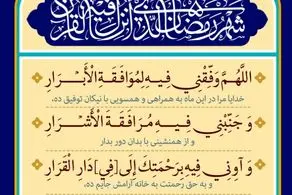 شهر رمضان الذي أنزل فيه القرآن
اللَّهُمَّ وَفِّقْنِي فِيهِ لِمُوَافَقَةِ الْأَبْرَارِ
خدایا مرا در این ماه به همراهی و همسویی با نیکان توفیق ده،
وَ جَنِّبْنِي فِيهِ مُرَافَقَةَ الْأَشْرَارِ
و از همنشینی با بدان دور بدار
وَ آوِنِي فِيهِ بِرَحْمَتِكَ إِلَى [فِي] دَارِ الْقَرَارِ
و به حق رحمتت به خانه آرامش جایم ده،